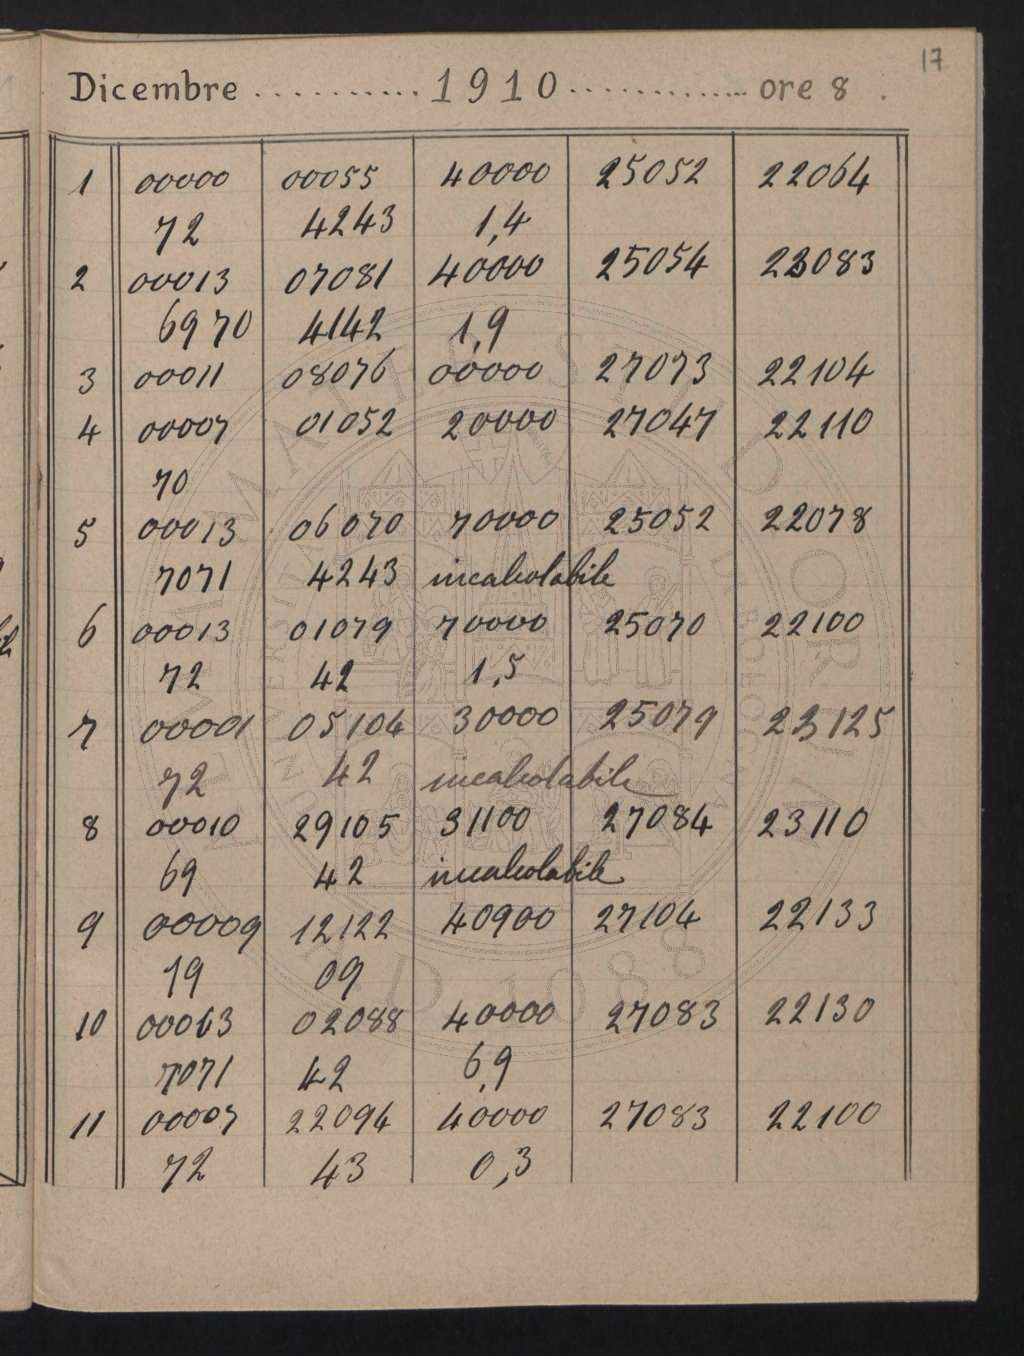 17
Dicembre .......... 1910 ............. ore 8 .
1 00000 00055 40000 25052 22064
72 4243 1,4
2 00013 07081 40000 25054 23083
6970 4142 1,9
3 00011 08076 00000 27073 22104
4 00007 01052 20000 27047 22110
70
5 00013 06070 70000 25052 22078
7071 4243 incalcolabile
6 00013 01079 70000 25070 22100
72 42 1,5
7 00001 05104 30000 25079 23125
72 42 incalcolabile
8 00010 29105 31100 27084 23110
69 42 incalcolabile
9 00009 12122 40900 27104 22133
19 09
10 00063 02088 40000 27083 22130
7071 42 6,9
11 00007 22094 40000 27083 22100
72 43 0,3
ALMA MATER STUDIORUM
A.D. 1088